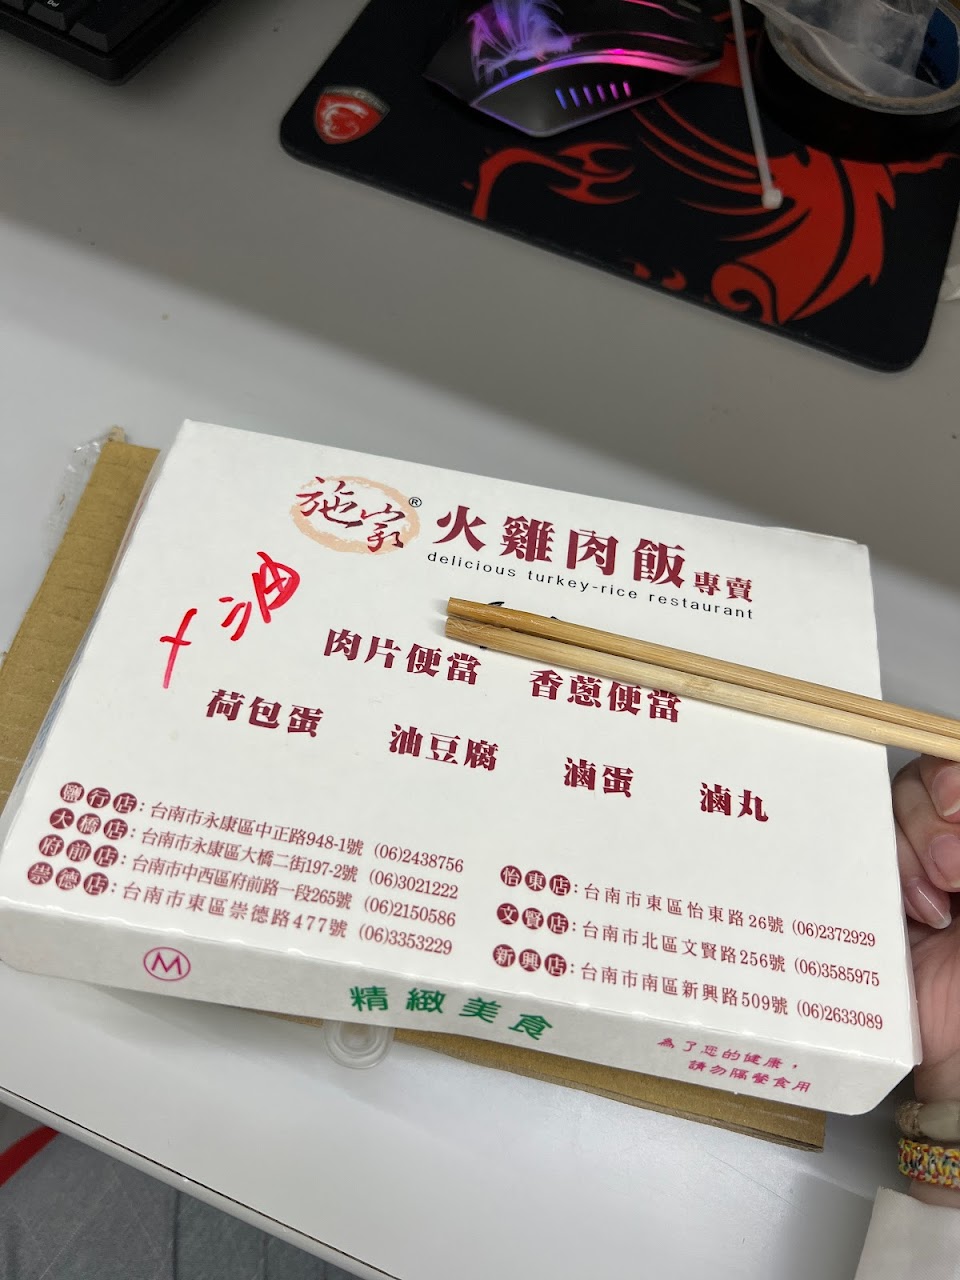 施家® 火雞肉飯專賣
delicious turkey-rice restaurant
+油
肉片便當 香蔥便當
荷包蛋 油豆腐 滷蛋 滷丸
鹽行店：台南市永康區中正路948-1號 (06)2438756
大橋店：台南市永康區大橋二街197-2號 (06)3021222
府前店：台南市中西區府前路一段265號 (06)2150586
崇德店：台南市東區崇德路477號 (06)3353229
怡東店：台南市東區怡東路26號 (06)2372929
文賢店：台南市北區文賢路256號 (06)3585975
新興店：台南市南區新興路509號 (06)2633089
M
精緻美食
為了您的健康，
請勿隔餐食用